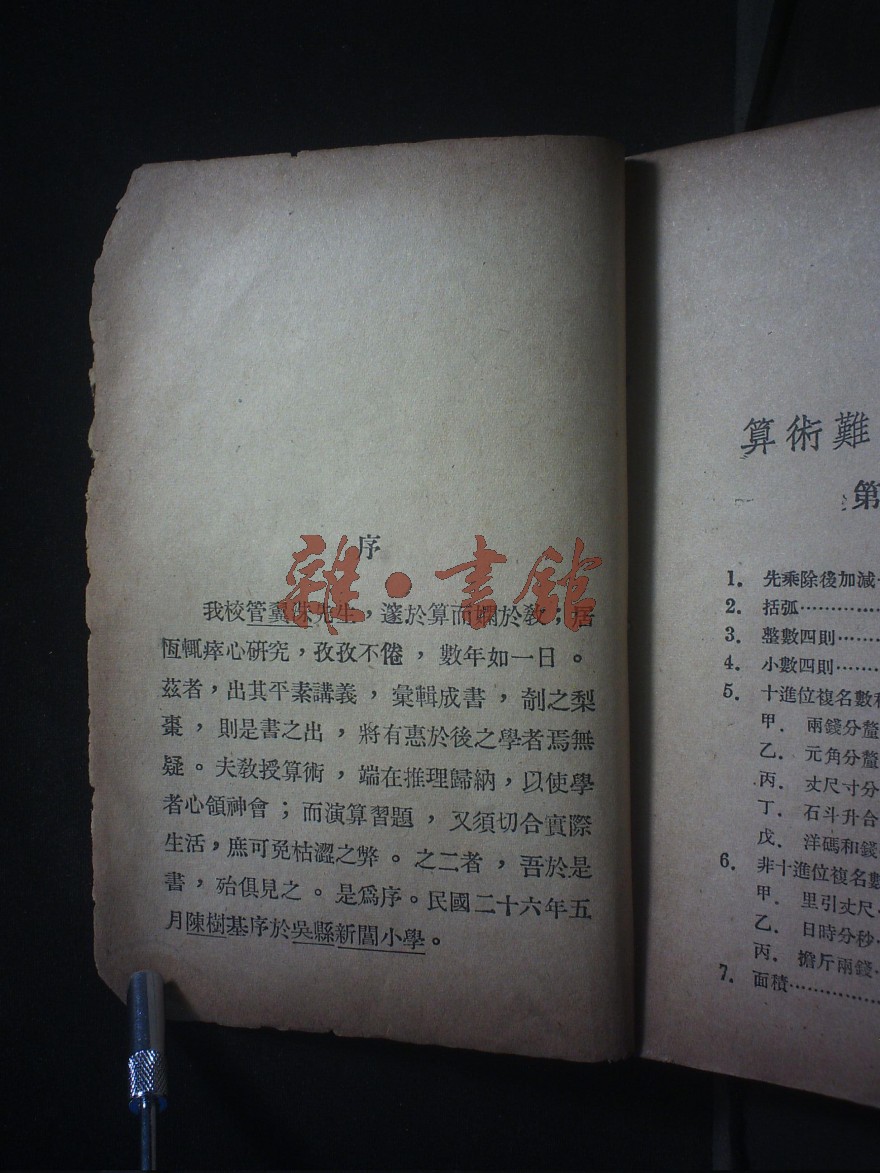 序
我校管翼洙先生，邃於算而嫻於教；居
恆輒瘁心硏究，孜孜不倦，數年如一日。
茲者，出其平素講義，彙輯成書，剞之梨
棗，則是書之出，將有惠於後之學者焉無
疑。夫教授算術，端在推理歸納，以使學
者心領神會；而演算習題，又須切合實際
生活，庶可免枯澀之弊。之二者，吾於是
書，殆俱見之。是爲序。民國二十六年五
月陳樹基序於吳縣新閶小學。
雜·書館
算術難
第
1. 先乘除後加減
2. 括弧
3. 整數四則
4. 小數四則
5. 十進位複名數
甲. 兩錢分釐
乙. 元角分釐
丙. 丈尺寸分
丁. 石斗升合
戊. 洋碼和錢
6. 非十進位複名數
甲. 里引丈尺
乙. 日時分秒
丙. 擔斤兩錢
7. 面積